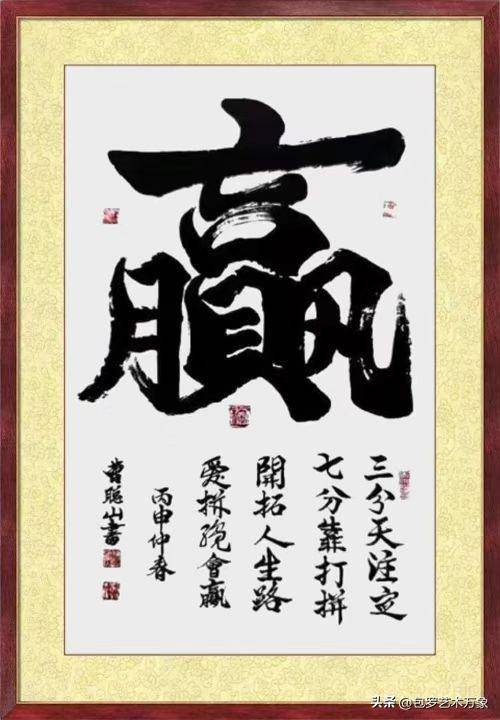 贏
三分天注定
七分靠打拼
開拓人生路
愛拼總會贏
丙申仲春
曹聪山書
头条 @包罗艺术万象